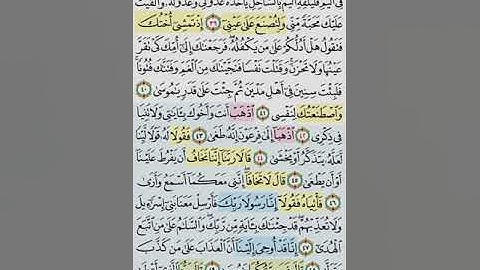 فِي ٱلْيَمِّ فَلْيُلْقِهِ ٱلْيَمُّ بِٱلسَّاحِلِ يَأْخُذْهُ عَدُوٌّ لِّي وَعَدُوٌّ لَّهُۥ ۚ وَأَلْقَيْتُ
عَلَيْكَ مَحَبَّةً مِّنِّي وَلِتُصْنَعَ عَلَىٰ عَيْنِيٓ ٣٩ إِذْ تَمْشِيٓ أُخْتُكَ
فَتَقُولُ هَلْ أَدُلُّكُمْ عَلَىٰ مَن يَكْفُلُهُۥ ۖ فَرَجَعْنَٰكَ إِلَىٰٓ أُمِّكَ كَيْ تَقَرَّ
عَيْنُهَا وَلَا تَحْزَنَ ۚ وَقَتَلْتَ نَفْسًا فَنَجَّيْنَٰكَ مِنَ ٱلْغَمِّ وَفَتَنَّٰكَ فُتُونًا ۚ
فَلَبِثْتَ سِنِينَ فِيٓ أَهْلِ مَدْيَنَ ثُمَّ جِئْتَ عَلَىٰ قَدَرٍ يَٰمُوسَىٰ ٤٠
وَٱصْطَنَعْتُكَ لِنَفْسِي ٤١ ٱذْهَبْ أَنتَ وَأَخُوكَ بِـَٔايَٰتِي وَلَا تَنِيَا
فِي ذِكْرِي ٤٢ ٱذْهَبَآ إِلَىٰ فِرْعَوْنَ إِنَّهُۥ طَغَىٰ ٤٣ فَقُولَا لَهُۥ قَوْلًا لَّيِّنًا
لَّعَلَّهُۥ يَتَذَكَّرُ أَوْ يَخْشَىٰ ٤٤ قَالَا رَبَّنَآ إِنَّنَا نَخَافُ أَن يَفْرُطَ عَلَيْنَآ
أَوْ أَن يَطْغَىٰ ٤٥ قَالَ لَا تَخَافَآ ۖ إِنَّنِي مَعَكُمَآ أَسْمَعُ وَأَرَىٰ
٤٦ فَأْتِيَاهُ فَقُولَآ إِنَّا رَسُولَا رَبِّكَ فَأَرْسِلْ مَعَنَا بَنِيٓ إِسْرَٰٓءِيلَ
وَلَا تُعَذِّبْهُمْ ۖ قَدْ جِئْنَٰكَ بِـَٔايَةٍ مِّن رَّبِّكَ ۖ وَٱلسَّلَٰمُ عَلَىٰ مَنِ ٱتَّبَعَ
ٱلْهُدَىٰٓ ٤٧ إِنَّا قَدْ أُوحِيَ إِلَيْنَآ أَنَّ ٱلْعَذَابَ عَلَىٰ مَن كَذَّبَ